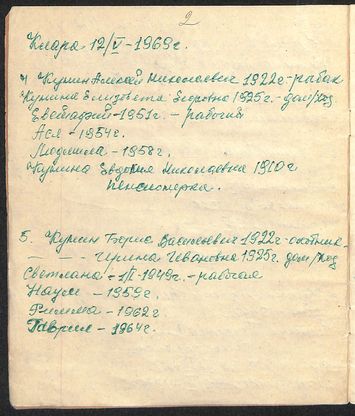 2
Клара 12/V-1969г.
4 Курин Алексей Николаевич 1922г-рыбак
Курина Елизовета Егоровна 1925г-дом/хоз
Евстафий-1951г. - рабочий
Ася-1954г.
Людмила-1958г.
Курина Евдокия Николаевна 1910г
пенсионерка.
5. Курин Борис Васильевич 1922г-охотник
— — Ирина Ивановна 1925г. дом/хоз
Светлана -1/II-1949г.-рабочая
Наум -1959г.
Римма-1962г
Гаврил-1964г.